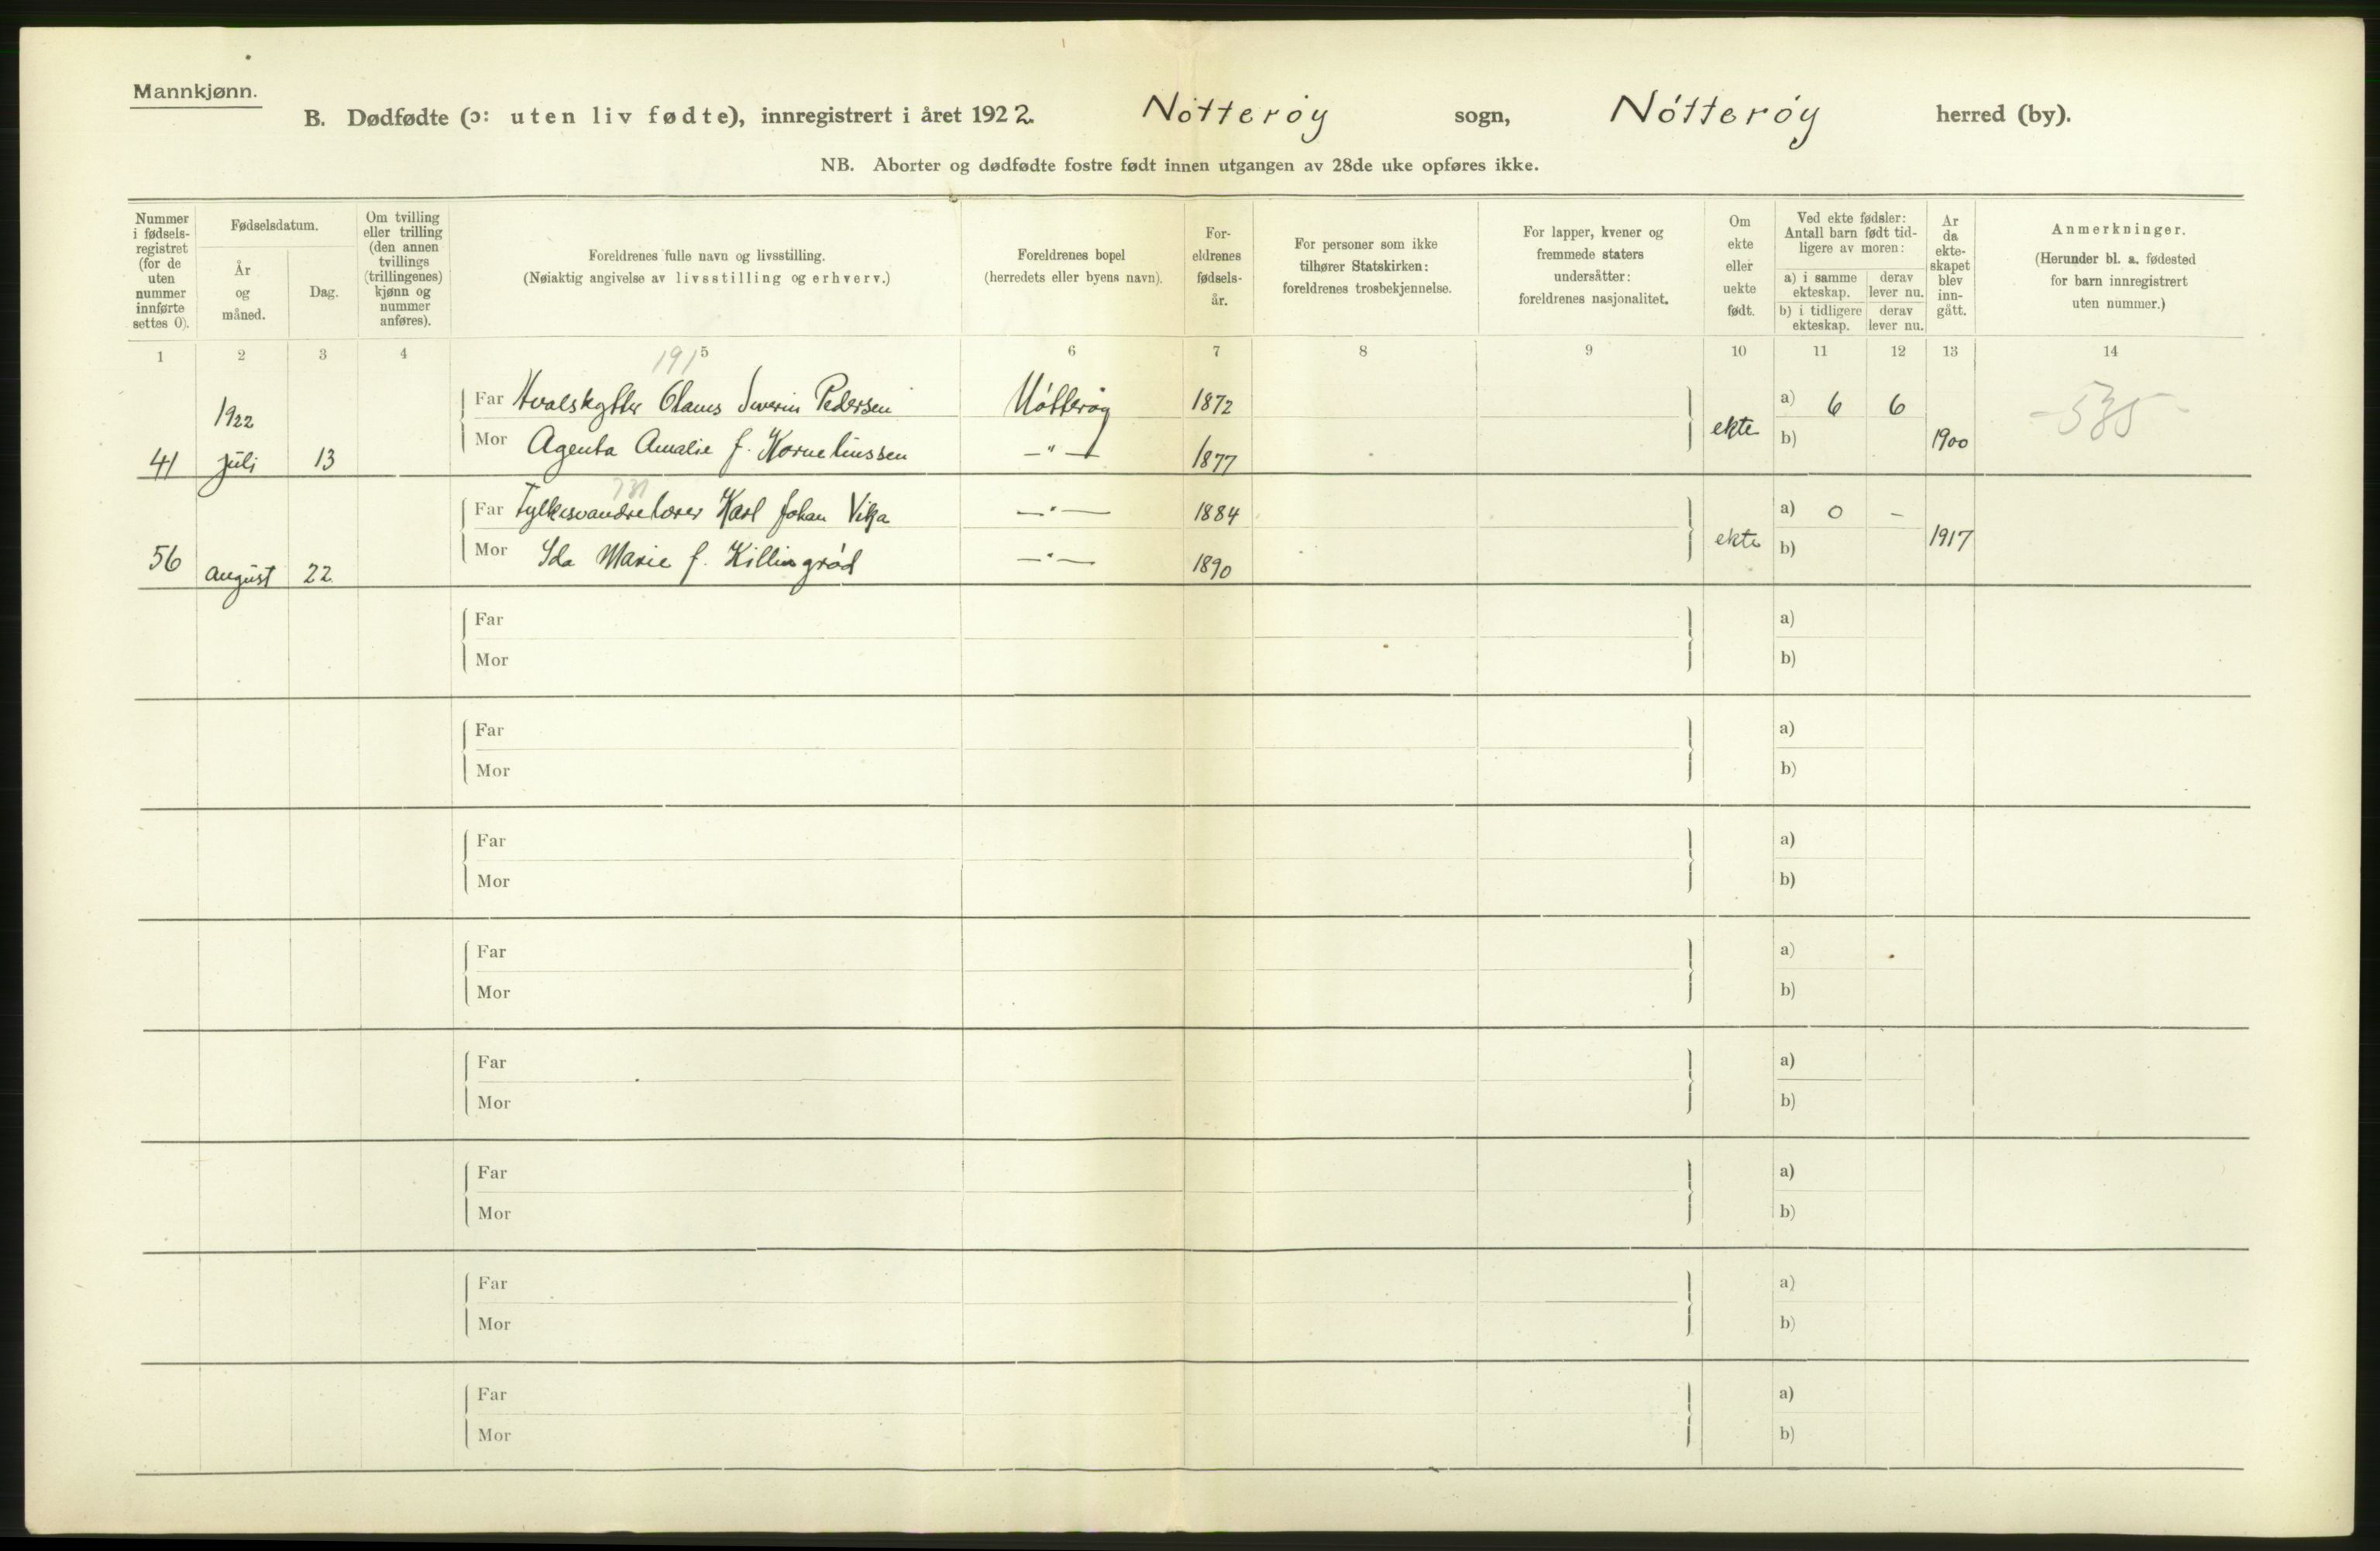 Mannkjønn.
B. Dødfødte (ɔ: uten liv fødte), innregistrert i året 1922. Nötteröy sogn, Nötteröy herred (by).
NB. Aborter og dødfødte fostre født innen utgangen av 28de uke opføres ikke.
Nummer i fødsels- registret (for de uten nummer innførte settes 0).
Fødselsdatum.
År og måned.
Dag.
Om tvilling eller trilling (den annen tvillings (trillingenes) kjønn og nummer anføres).
Foreldrenes fulle navn og livsstilling.
(Nøiaktig angivelse av livsstilling og erhverv.)
Foreldrenes bopel
(herredets eller byens navn).
For- eldrenes fødsels- år.
For personer som ikke tilhører Statskirken: foreldrenes trosbekjennelse.
For lapper, kvener og fremmede staters undersåtter: foreldrenes nasjonalitet.
Om ekte eller uekte født.
Ved ekte fødsler: Antall barn født tid- ligere av moren:
a) i samme ekteskap. derav lever nu.
b) i tidligere ekteskap. derav lever nu.
År da ekte- skapet blev inn- gått.
Anmerkninger.
(Herunder bl. a. fødested for barn innregistrert uten nummer.)
1 2 3 4 5 6 7 8 9 10 11 12 13 14
191
Far Hvalskytter Olaus Severin Pedersen Nötteröy 1872 a) 6 6 535
1922
Mor Agenta Amalie f. Korneliussen — " — 1877 ekte b) 1900
41 juli 13
731
Far Fylkesvandrelærer Karl Johan Vika — " — 1884 a) 0 -
Mor Ida Marie f. Killingröd — " — 1890 ekte b) 1917
56 august 22
Far a)
Mor b)
Far a)
Mor b)
Far a)
Mor b)
Far a)
Mor b)
Far a)
Mor b)
Far a)
Mor b)
Far a)
Mor b)
Far a)
Mor b)